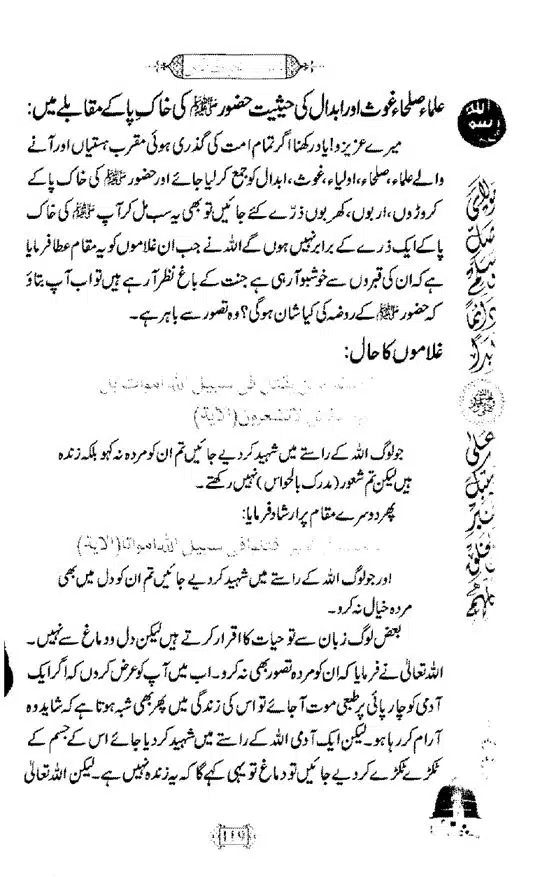 علماء صلحاء غوث اور ابدال کی حیثیت حضور ﷺ کی خاکِ پا کے مقابلے میں:
میرے عزیزو! یاد رکھنا اگر تمام امت کی گذری ہوئی مقرب ہستیاں اور آنے
والے علماء، صلحاء، اولیاء، غوث، ابدال کو جمع کر لیا جائے اور حضور ﷺ کی خاک پا کے
کروڑوں، اربوں، کھربوں ذرّے کئے جائیں تو بھی یہ سب مل کر آپ ﷺ کی خاک
پا کے ایک ذرے کے برابر نہیں ہوں گے اللہ نے جب ان غلاموں کو یہ مقام عطا فرمایا
ہے کہ ان کی قبروں سے خوشبو آ رہی ہے جنت کے باغ نظر آ رہے ہیں تو اب آپ بتاؤ
کہ حضور ﷺ کے روضہ کی کیا شان ہوگی؟ وہ تصور سے باہر ہے۔
غلاموں کا حال:
فی سبیل اللہ اموات بل
لا تشعرون (الایۃ)
جو لوگ اللہ کے راستے میں شہید کر دیے جائیں تم ان کو مردہ نہ کہو بلکہ زندہ
ہیں لیکن تم شعور (مدرک بالحواس) نہیں رکھتے۔
پھر دوسرے مقام پر ارشاد فرمایا:
فی سبیل اللہ امواتا (الایۃ)
اور جو لوگ اللہ کے راستے میں شہید کر دیے جائیں تم ان کو دل میں بھی
مردہ خیال نہ کرو۔
بعض لوگ زبان سے تو حیات کا اقرار کرتے ہیں لیکن دل و دماغ سے نہیں۔
اللہ تعالیٰ نے فرمایا کہ ان کو مردہ تصور بھی نہ کرو۔ اب میں آپ کو عرض کردوں کہ اگر ایک
آدمی کو چارپائی پر طبعی موت آ جائے تو اس کی زندگی میں پھر بھی شبہ ہوتا ہے کہ شاید وہ
آرام کر رہا ہو۔ لیکن ایک آدمی اللہ کے راستے میں شہید کر دیا جائے اس کے جسم کے
ٹکڑے ٹکڑے کر دیے جائیں تو دماغ تو یہی کہے گا کہ یہ زندہ نہیں ہے۔ لیکن اللہ تعالیٰ
119
اللہ
رسول
مولای صل وسلم دائما ابدا
علی حبیبک خیر الخلق کلہم